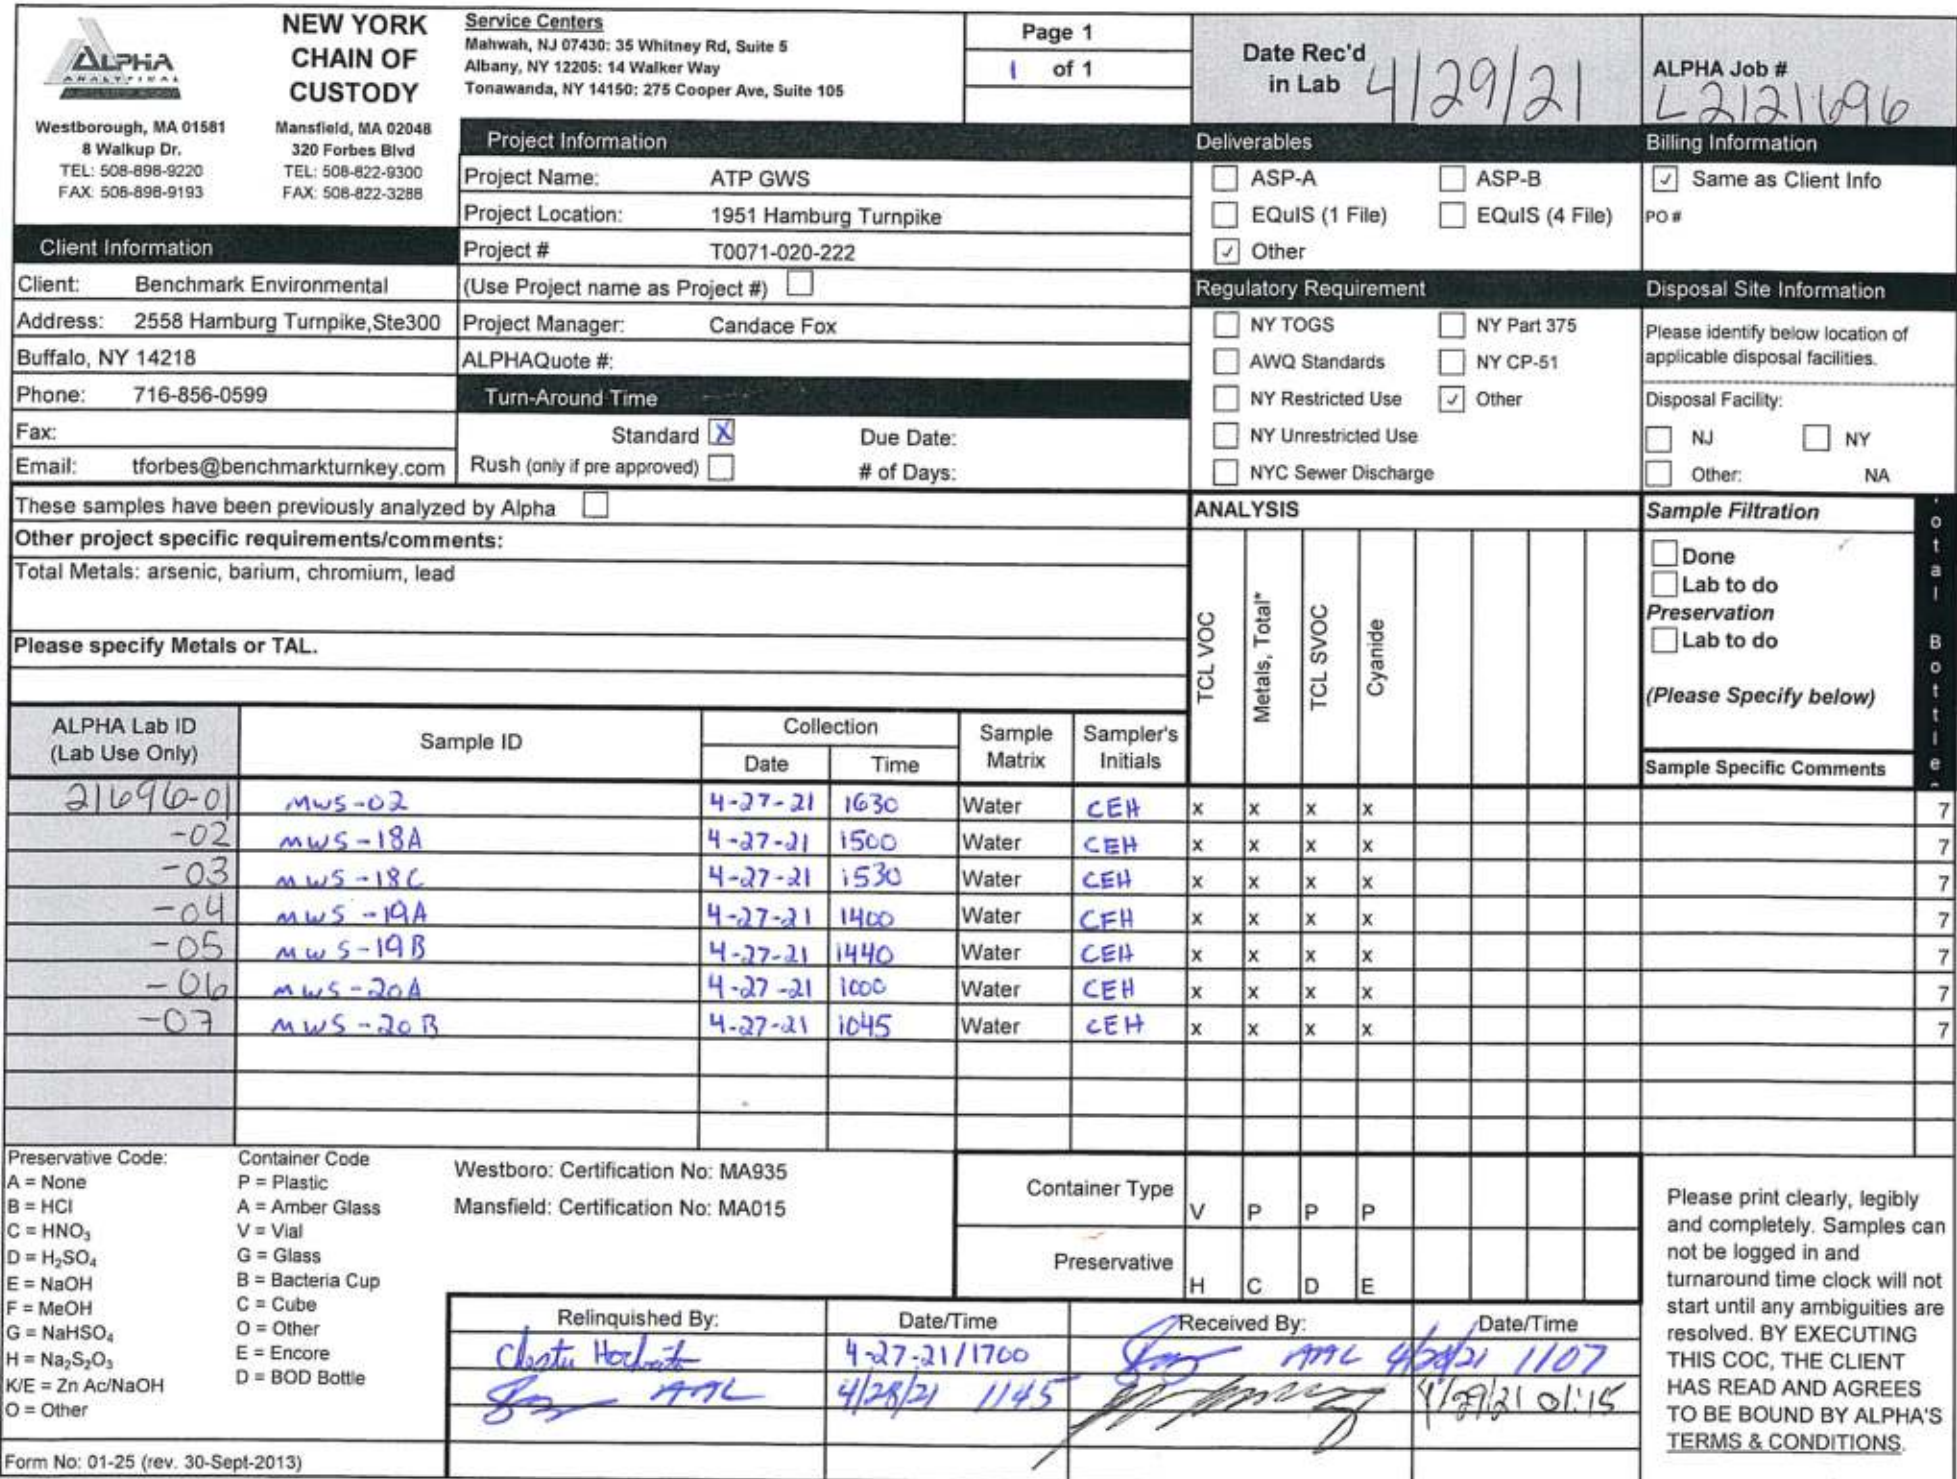 ALPHA
ANALYTICAL
Westborough, MA 01581
8 Walkup Dr.
TEL: 508-898-9220
FAX: 508-898-9193
NEW YORK
CHAIN OF
CUSTODY
Mansfield, MA 02048
320 Forbes Blvd
TEL: 508-822-9300
FAX: 508-822-3288
Service Centers
Mahwah, NJ 07430: 35 Whitney Rd, Suite 5
Albany, NY 12205: 14 Walker Way
Tonawanda, NY 14150: 275 Cooper Ave, Suite 105
Page 1
1 of 1
Date Rec'd
in Lab 4/29/21
ALPHA Job #
L2121696
Client Information
Client: Benchmark Environmental
Address: 2558 Hamburg Turnpike,Ste300
Buffalo, NY 14218
Phone: 716-856-0599
Fax:
Email: tforbes@benchmarkturnkey.com
Project Information
Project Name: ATP GWS
Project Location: 1951 Hamburg Turnpike
Project # T0071-020-222
(Use Project name as Project #)
Project Manager: Candace Fox
ALPHAQuote #:
Turn-Around Time
Standard X Due Date:
Rush (only if pre approved) # of Days:
Deliverables
ASP-A ASP-B
EQuIS (1 File) EQuIS (4 File)
✓ Other
Regulatory Requirement
NY TOGS NY Part 375
AWQ Standards NY CP-51
NY Restricted Use ✓ Other
NY Unrestricted Use
NYC Sewer Discharge
Billing Information
✓ Same as Client Info
PO #
Disposal Site Information
Please identify below location of
applicable disposal facilities.
Disposal Facility:
NJ NY
Other: NA
These samples have been previously analyzed by Alpha
Other project specific requirements/comments:
Total Metals: arsenic, barium, chromium, lead
Please specify Metals or TAL.
ANALYSIS
TCL VOC
Metals, Total*
TCL SVOC
Cyanide
Sample Filtration
Done
Lab to do
Preservation
Lab to do
(Please Specify below)
Sample Specific Comments
otal Bottle
ALPHA Lab ID
(Lab Use Only)
Sample ID
Collection
Date Time
Sample
Matrix
Sampler's
Initials
21696-01 MWS-02 4-27-21 1630 Water CEH x x x x 7
-02 MWS-18A 4-27-21 1500 Water CEH x x x x 7
-03 MWS-18C 4-27-21 1530 Water CEH x x x x 7
-04 MWS-19A 4-27-21 1400 Water CEH x x x x 7
-05 MWS-19B 4-27-21 1440 Water CEH x x x x 7
-06 MWS-20A 4-27-21 1000 Water CEH x x x x 7
-07 MWS-20B 4-27-21 1045 Water CEH x x x x 7
Preservative Code:
A = None
B = HCl
C = HNO₃
D = H₂SO₄
E = NaOH
F = MeOH
G = NaHSO₄
H = Na₂S₂O₃
K/E = Zn Ac/NaOH
O = Other
Container Code
P = Plastic
A = Amber Glass
V = Vial
G = Glass
B = Bacteria Cup
C = Cube
O = Other
E = Encore
D = BOD Bottle
Westboro: Certification No: MA935
Mansfield: Certification No: MA015
Container Type V P P P
Preservative H C D E
Relinquished By: Date/Time Received By: Date/Time
4-27-21/1700 AAL 4/28/21 1107
AAL 4/28/21 1145 4/29/21 01:15
Please print clearly, legibly
and completely. Samples can
not be logged in and
turnaround time clock will not
start until any ambiguities are
resolved. BY EXECUTING
THIS COC, THE CLIENT
HAS READ AND AGREES
TO BE BOUND BY ALPHA'S
TERMS & CONDITIONS.
Form No: 01-25 (rev. 30-Sept-2013)